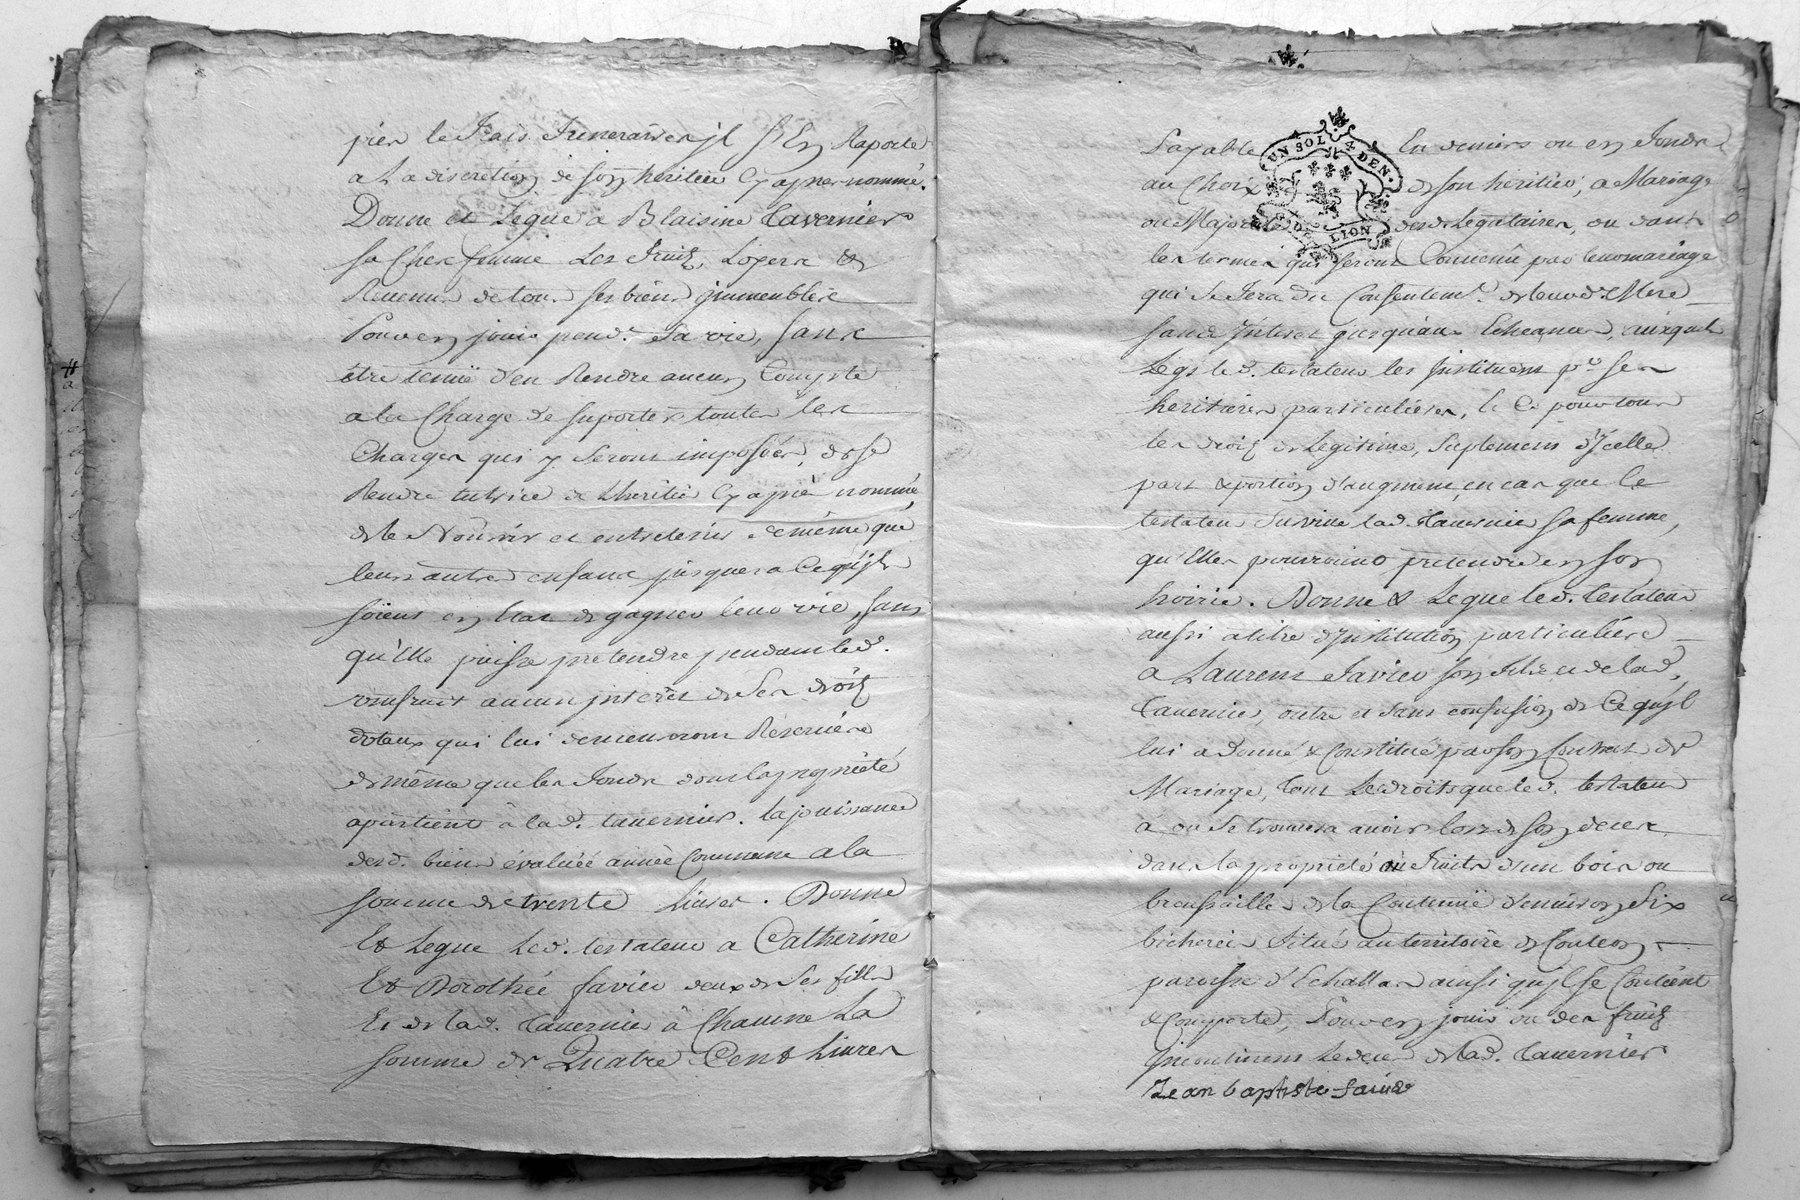 pier le frais funeraires jl S'En Raporte
a La discretion de son heritier cy apres nommé.
Donne et Legue a Blaisine Tavernier
sa Chere femme Les fruits, Loyers &
Revenus de tous ses biens jmmeubles
Pour en jouir pend.t sa vie, sans
être tenuë d'en Rendre aucun Compte
a la Charge de suporter toutes les
Charges qui y seront imposées, de se
Rendre tutrice de Lheritier cy apré nommé,
de le Nourrir et entretenir de même que
leurs autres enfans jusques a ce qu'jls
soient en Etat de gagner leur vie, sans
qu'Elle puisse pretendre pendant led.
usufruit aucun jnterêt de ses droits
dotaux qui lui demeureront Réservés
de même que les fonds dont la propriété
apartient à lad. tavernier. la jouissance
desd. biens évaluéé année Commune a la
somme de trente Livres. Donne
Et Legue Led. testateur a Catherine
Et Dorothée favier deux de ses filles
Et de lad. Tavernier à Chacune La
somme de Quatre Cent Livres
UN SOL 4 DEN.
DE LION
Payable En deniers ou en fonds
au Choix de son heritier, a Mariage
ou Majorité desd. Legataires, ou dans
les termes qui seront Convenû par leur mariage
qui se fera du Consentem.t de leurd. Mere
sans jnterest jusqu'aux Echeances, auxquels
Legs led. testateur les jnstituent p.r ses
heritieres particulieres, & Ce pour tous
les droits de Legitime, suplement d'ycelle
part & portion d'augment, en cas que le
testateur survive lad. Tavernier sa femme,
qu'Elles pourroient pretendre en son
hoirie. Donne & Legue led. testateur
aussi a titre d'jnstitution particuliere
a Laurent favier son fils et de lad.
Tavernier, outre et sans confusion de Ce qu'jl
lui a donné & Constitué par son Contrat de
Mariage, Tous Les droits que led. testateur
a ou se trouvera avoir lors de son deces
dans la propriété ou fruits d'un bois ou
broussailles de la Contenuë d'environ six
bicherées situé au territoire de Couleon
paroisse d'Echallas ainsi qu'jl se Contient
& Comporte, Pour en jouir ou des fruits
jncontinent Le deces de lad. Tavernier
Jean baptiste favier